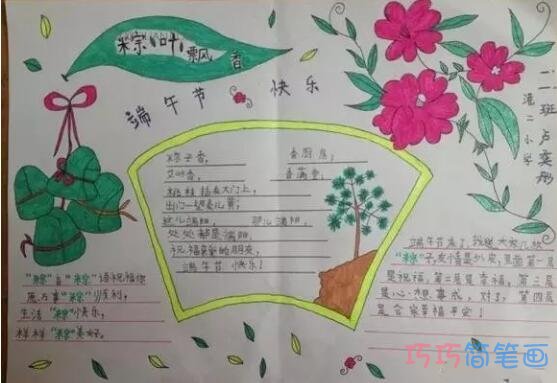 粽叶飘香
端午节 快乐
二二班 卢奕彤
港二小学
粽子香， 香厨房，
艾叶香， 香满堂，
桃枝插在大门上，
出门一望麦儿黄，
这儿端阳， 那儿端阳，
处处都是端阳，
祝福亲爱的朋友，
端午节 快乐！
"粽"有"粽"语祝福你
愿万事"粽"顺利，
生活"粽"快乐，
样样"粽"美好。
端午节来了，我送大家几枚
"粽"子，友情是外皮，里面第一层
是祝福，第二层是幸福，第三层
是心想事成，对了，第四层
是合家幸福平安！
巧巧简笔画